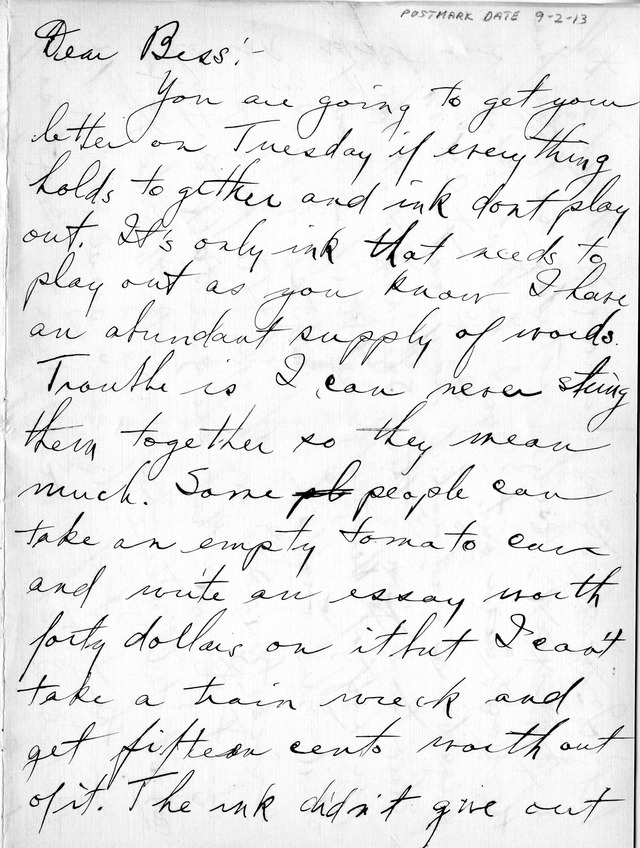 POSTMARK DATE 9-2-13
Dear Bess:-
You are going to get your
letter on Tuesday if everything
holds to gether and ink dont play
out. It's only ink that needs to
play out as you know I have
an abundant supply of words.
Trouble is I can never string
them together so they mean
much. Some people can
take an empty tomato can
and write an essay worth
forty dollars on it but I can't
take a train wreck and
get fifteen cents worth out
of it. The ink didn't give out